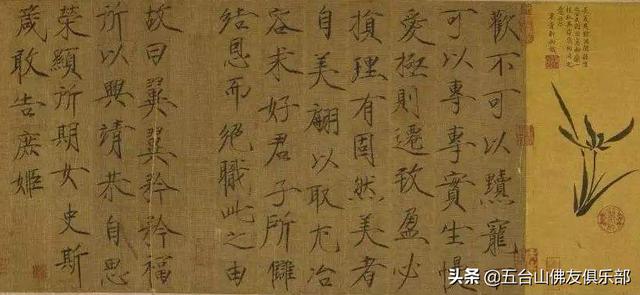 歡不可以黷寵不
可以專專實生慢
愛極則遷致盈必
損理有固然美者
自美翩以取尤冶
容求好君子所讎
結恩而絕職此之由
故曰翼翼矜矜福
所以興靖恭自思
榮顯所期女史斯
箴敢告庶姬
头条 @五台山佛友俱乐部